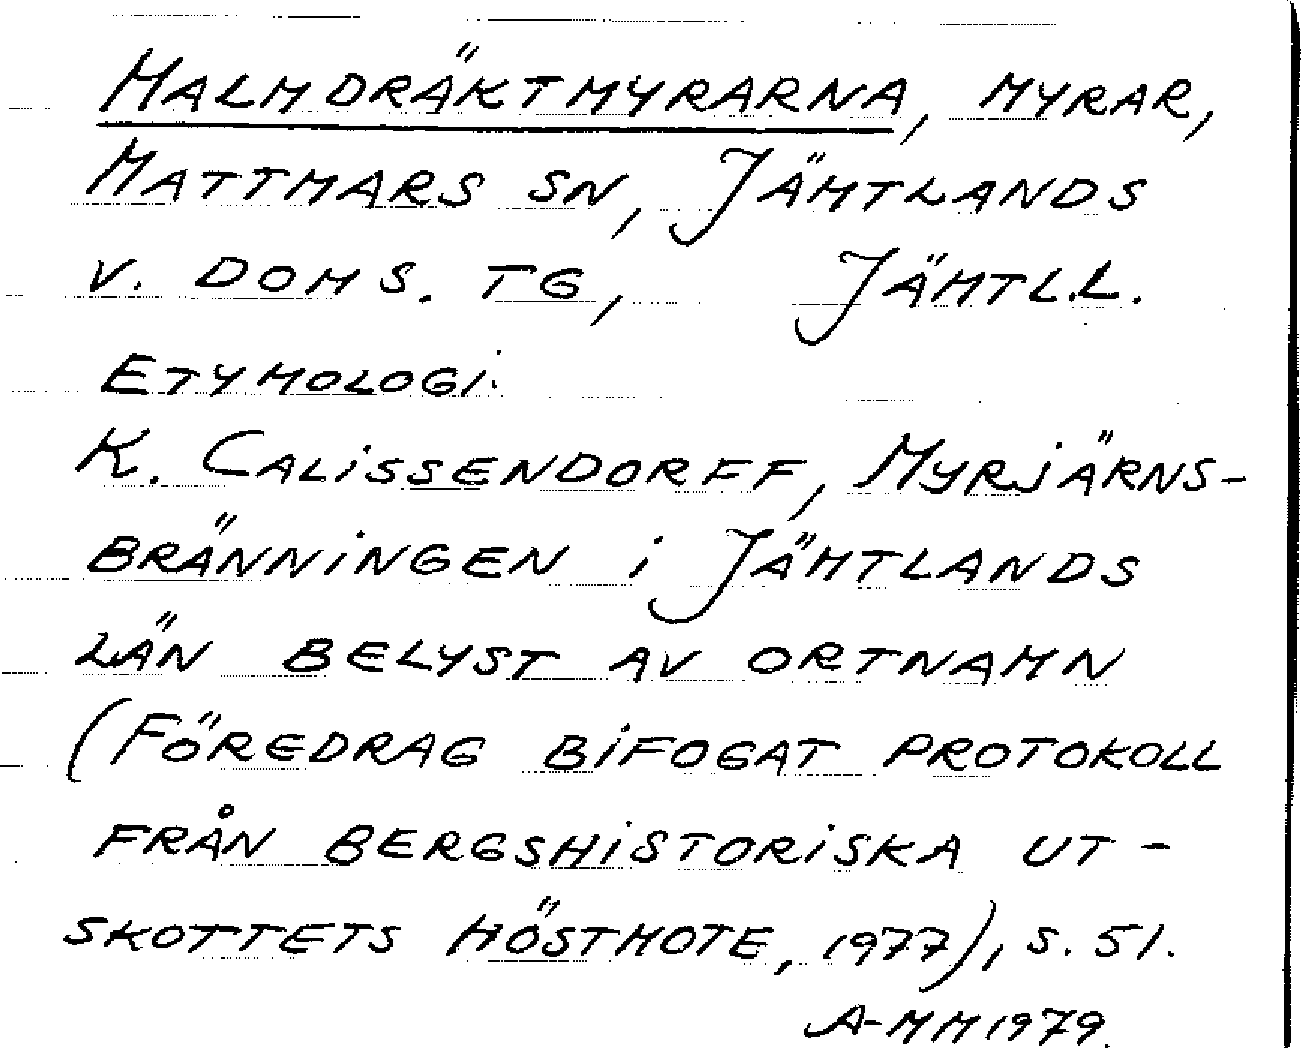 MALMDRÄKTMYRARNA, MYRAR,
MATTMARS SN, JÄMTLANDS
V. DOMS. TG, JÄMTL.L.
ETYMOLOGI:
K. CALISSENDORFF, MYRJÄRNS-
BRÄNNINGEN I JÄMTLANDS
LÄN BELYST AV ORTNAMN
(FÖREDRAG BIFOGAT PROTOKOLL
FRÅN BERGSHISTORISKA UT-
SKOTTETS HÖSTMOTE, 1977), S. 51.
A-MM 1979.